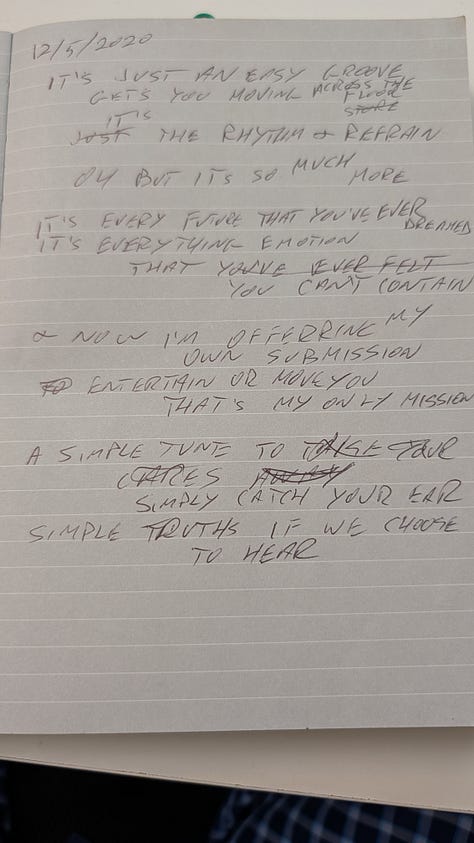 12/5/2020
IT'S JUST AN EASY GROOVE
GETS YOU MOVING ACROSS THE
FLOOR
IT'S STORE
JUST THE RHYTHM & REFRAIN
OH BUT IT'S SO MUCH MORE
IT'S EVERY FUTURE THAT YOU'VE EVER DREAMED
IT'S EVERYTHING EMOTION
THAT YOU'VE EVER FELT
YOU CAN'T CONTAIN
& NOW I'M OFFERRING MY
OWN SUBMISSION
TO ENTERTAIN OR MOVE YOU
THAT'S MY ONLY MISSION
A SIMPLE TUNE TO YOUR
CARES AWAY
SIMPLY CATCH YOUR EAR
SIMPLE TRUTHS IF WE CHOOSE
TO HEAR